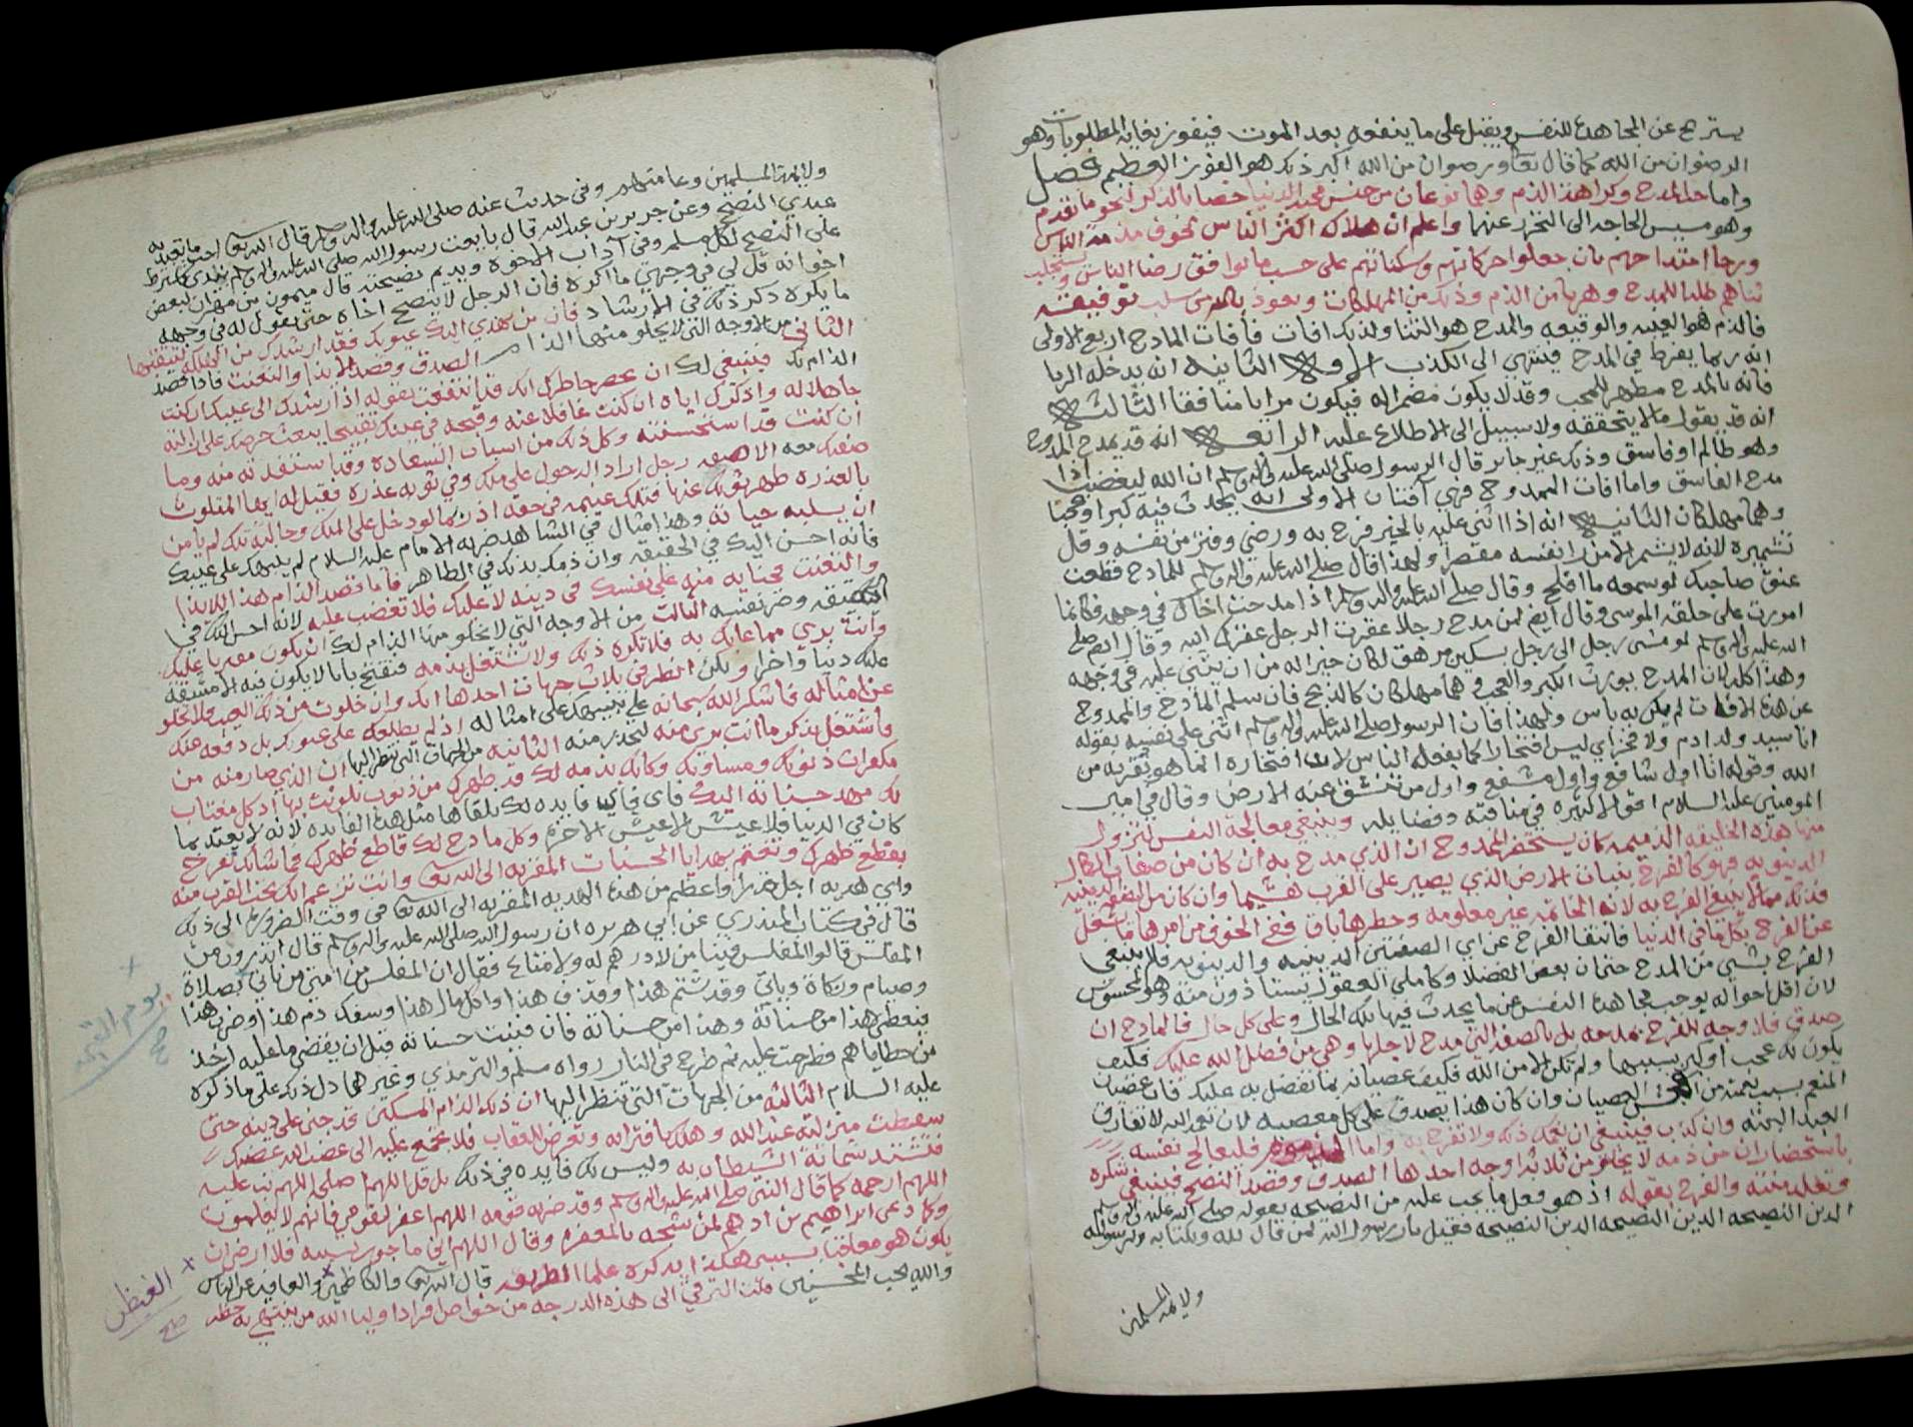 يستريح عن المجاهده للنفس ويقبل على ما ينفعه بعد الموت فيفوز بغاية المطلوبات وهو
الرضوان من الله كما قال تعالى ورضوان من الله اكبر ذلك هو الفوز العظيم فصل
واما حب المدح وكراهة الذم وهما نوعان من جنس محبة الدنيا خصا بالذكر لنحو ما تقدم
وهو مسيس الحاجه الى التحرز عنهما واعلم ان هلاك اكثر الناس لخوف مذمة الناس
ورجا امتداحهم بان جعلوا حركاتهم وسكناتهم على حسب ما يوافق رضا الناس ويستجلب
ثناهم طلبا للمدح وهربا من الذم وذلك من المهلكات ونعوذ بالله من سلب توفيقه
فالذم هو الغيبه والوقيعه والمدح هو الثنا ولذلك افات فافات المادح اربع الاولى
انه ربما يفرط في المدح فينتهي الى الكذب الثانيه ان يدخله الريا
فانه بالمدح مظهر للمحب وقد لا يكون مضمرا له فيكون مرايا منافقا الثالثه
انه قد يقول مالا يتحققه ولا سبيل الى الاطلاع عليه الرابعه انه قد يمدح الممدوح
وهو ظالم او فاسق وذلك غير جائز قال الرسول صلى الله عليه واله وسلم ان الله ليغضب اذا
مدح الفاسق واما افات الممدوح فهي آفتان الاولى انه يحدث فيه كبرا وعجبا
وهما مهلكان الثانيه انه اذا اثني عليه بالخير فرح به ورضي وفتر من نفسه وقل
تشميره لانه لا يشمر الا من يرا نفسه مقصرا ولهذا قال صلى الله عليه واله وسلم للمادح قطعت
عنق صاحبك لو سمعه ما افلح وقال صلى الله عليه واله وسلم اذا مدحت اخاك في وجهه فكانما
امررت على حلقه الموسى وقال ايضا لمن مدح رجلا عقرت الرجل عقرك الله وقال ايضا صلى
الله عليه واله وسلم لو مشى رجل الى رجل بسكين مرهق لكان خيرا له من ان يثني عليه في وجهه
وهذا كله لان المدح يورث الكبر والعجب وهما مهلكان كالذبح فان سلم المادح والممدوح
عن هذه الافات لم يكن به باس ولهذا فان الرسول صلى الله عليه واله وسلم اثنى على نفسه بقوله
انا سيد ولد ادم ولا فخر اي ليس افتخارا كما يفعله الناس لان افتخاره انما هو بقربه من
الله وقوله انا اول شافع واول مشفع واول من تنشق عنه الارض وقال في امير
المومنين عليه السلام اقواله الكثيره في مناقبه وفضايله وينبغي معالجة النفس لتزول
منها هذه الخليقه الذميمه بان يستحضر الممدوح ان الذي مدح به ان كان من صفات الكمال
الدنيويه فهو كالفرح بنبات الارض الذي يصير على القرب هشيما وان كان من الصفه الدينيه
فذلك مما لا ينبغي الفرح به لانه الخاتمه غير معلومه وخطرها باق ففي الخوف من امرها ما شغل
عن الفرح بكل ما في الدنيا فانتفا الفرح عن اي الصفتين الدينيه والدنيويه فلا ينبغي
الفرح بشي من المدح حتى ان بعض الفضلا وكاملي العقول يستاذون منه
لان اقل احواله يوجب مجاهدة النفس عن ما يحدث فيها تلك الحال وعلى كل حال فالمادح ان
صدق فلا وجه للفرح بمدحه بل بالصفه التي مدح لاجلها وهي من فضل الله عليك فكيف
يكون لك عجب او كبر بسببها ولم تكن الا من الله فكيف عصيانه بما تفضل به عليك فان عصيان
المنعم بسبب نعمته من افحش العصيان وان كان هذا يصدق على كل معصيه لان نعم الله لا تفارق
العبد البته وان كذب فينبغي ان يغمك ذلك ولا تفرح به واما المذموم فليعالج نفسه
باستحضار ان من ذمه لا يخلو من ثلاثة اوجه احدها الصدق وقصد النصح فينبغي شكره
وتقلد منته والفرح بقوله اذ هو فعل ما يجب عليه من النصيحه بقوله صلى الله عليه واله وسلم
الدين النصيحه الدين النصيحه الدين النصيحه فقيل يا رسول الله لمن قال لله ولكتابه ولرسوله
ولايمة المسلمين
ولايمة المسلمين وعامتهم وفي حديث عنه صلى الله عليه واله وسلم قال الله تعالى احب ما تعبد به
عبدي النصح وعن جرير بن عبد الله قال بايعت رسول الله صلى الله عليه واله وسلم
على النصح لكل مسلم وفي آداب الاخوه ويديم نصيحته قال ميمون بن مهران لبعض
اخوانه قل لي في وجهي ما اكره فان الرجل لا ينصح اخاه حتى يقول له في وجهه
ما يكره ذكر ذلك في الارشاد فان من يهدي اليك عيوبك فقد ارشدك من المهلك لتتقيها
الثاني من الاوجه التي لا يخلو منها الذام الصدق وقصد الايذا والتعنت فاذا قصد
الذام لك فينبغي لك ان تحضر خاطرك انك قد انتفعت بقوله اذ ارشدك الى عيبك ان كنت
جاهلا له واذكرك اياه ان كنت غافلا عنه وقبحه في عينك تقبيحا يبعث حرصك على ازالته
ان كنت قد استحسنته وكل ذلك من اسباب السعاده وقد استفدته منه وما
صفتك معه الا صفه رجل اراد الدخول على ملك وفي ثوبه عذره فقيل له ايها المتلوث
بالعذره طهر ثوبك عنها فتلك غنيمه في حقه اذ ربما لو دخل على الملك وحالته تلك لم يامن
ان يسلبه حياته وهذا مثال في الشاهد ضربه الامام عليه السلام لم ينبهك على عيبك
فانه احسن اليك في الحقيقه وان ذمك بذلك في الظاهر فاما قصد الذام هذا الايذا
والتعنت فجنايه منه على نفسك في دينه لا عليك فلا تغضب عليه لانه احسن اليك في
الحقيقه وضر نفسه الثالث من الاوجه التي لا يخلو منها الذام لك ان يكون مفتريا عليك
وانت بري مما عابك به فلا تكره ذلك ولا تشتغل بذمه فتفتح بابا لا يكون فيه الا مشقه
عليك دنيا واخرا ولكن انظر في ثلاث جهات احدها انك وان خلوت من ذلك العيب فلا تخلو
عن امثاله فاشكر الله سبحانه على تنبيهك على امثاله اذ لم يطلعه على عيوبك بل دفعه عنك
واشتغل بذكر ما انت بري منه لتحذر منه الثانيه من الجهات التي تنظر اليها ان الذي صار منه من
مكفرات ذنوبك ومساوئك وكانه بذمه لك قد طهرك من ذنوب تلوثت بها اذ كل مغتاب
لك مهد حسناته اليك فاي فايده لك تلقاها مثل هذه الفايده لانه لا يعتد بما
كان في الدنيا فلا عيش الا عيش الاخره وكل مادح لك قاطع ظهرك فما شانك تفرح
بقطع ظهرك وتغتم بهدايا الحسنات المقربه الى الله تعالى وانت تزعم انك تحب القرب منه
واي هديه اجل قدرا واعظم من هذه الهديه المقربه الى الله تعالى في وقت الضروره الى ذلك
قال في كتاب المنذري عن ابي هريره ان رسول الله صلى الله عليه واله وسلم قال اتدرون من
المفلس قالوا المفلس فينا من لا درهم له ولا متاع فقال ان المفلس من امتي من ياتي بصلاة
وصيام وزكاة وياتي وقد شتم هذا وقذف هذا واكل مال هذا وسفك دم هذا وضرب هذا
فيعطى هذا من حسناته وهذا من حسناته فان فنيت حسناته قبل ان يقضي ما عليه اخذ
من خطاياهم فطرحت عليه ثم طرح في النار رواه مسلم والترمذي وغيرهما دل ذلك على ما ذكره
عليه السلام الثالثه من الجهات التي تنظر اليها ان ذلك الذام المسكين قد جنى على دينه حتى
سقطت منزلته عند الله وهلك بافترائه وتعرض للعقاب فلا تجمع عليه الى غضب الله غضبك
فتشتد شماتة الشيطان به وليس لك فايده في ذلك بل قل اللهم اصلحه اللهم تب عليه
اللهم ارحمه كما قال النبي صلى الله عليه واله وسلم وقد ضربه قومه اللهم اغفر لقومي فانهم لا يعلمون
وكما دعى ابراهيم بن ادهم لمن شجه بالمغفره وقال اللهم اني ماجور بسببه فلا ارضى ان
يكون هو معاقبا بسببي هكذا يذكره علما الطريقه قال الله تعالى والكاظمين والعافين عن الناس
والله يحب المحسنين قلت الترقي الى هذه الدرجه من خواص افراد اوليا الله
يوم القيمه
صح
الغيظ
صح